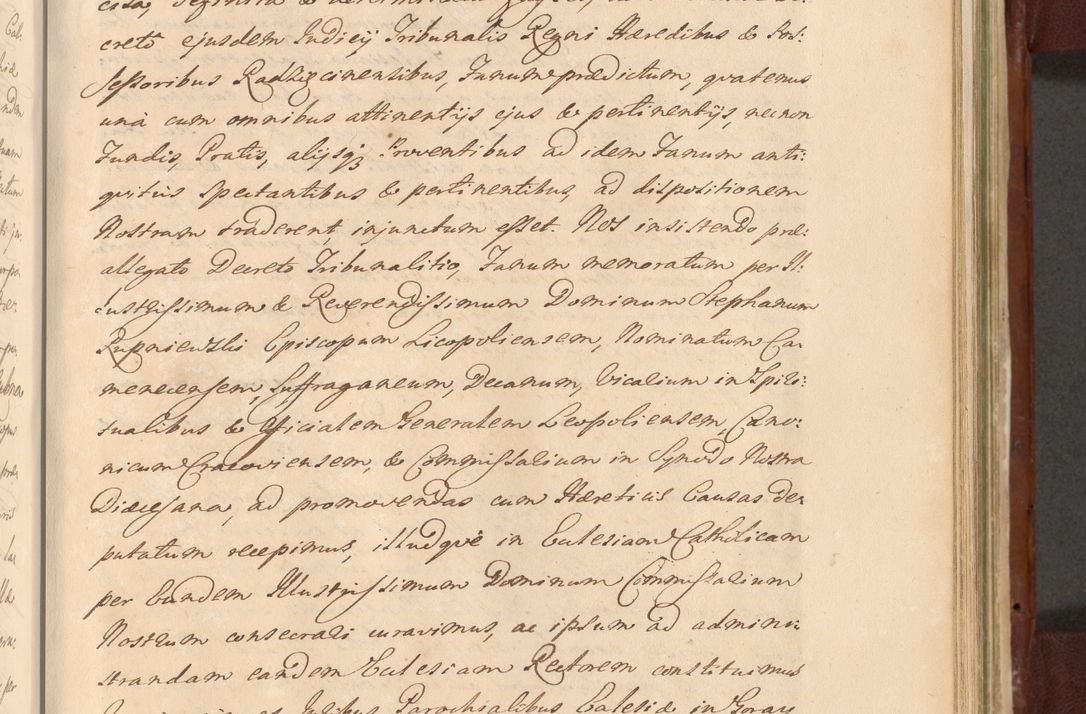 creto ejusdem Judicij Tribunalis Regni Hæredibus & Pos:
sessoribus Radzięcinensibus, Fanum prædictum, quatenus
unà cum omnibus attinentijs ejus & pertinentijs, nec non
Fundis, Pratis, alijsq; Proventibus ad idem Fanum anti:
quitus spectantibus & pertinentibus, ad dispositionem
Nostram traderent, injunctum esset. Nos insistendo præ:
allegato Decreto Tribunalitio, Fanum memoratum per Il:
lustrissimum & Reverendissimum Dominum Stephanum
Rupniewski Episcopum Licopoliensem, Nominatum Ca
menecensem, Suffraganeum, Decanum, Vicarium in Spiri:
tualibus & Officialem Generalem Leopoliensem, Cano:
nicum Cracoviensem, & Commissarium in Synodo Nostra
Diæcesana, ad promovendas cum Hæreticis Causas de:
putatum recepimus, illudquè in Ecclesiam Catholicam
per Eundem Illustrissimum Dominum Commissarium
Nostrum consecrari curavimus, ac ipsum ad admini:
strandam eandem Ecclesiam Rectorem constituimus
Parochialibus Ecclesiæ in Goray